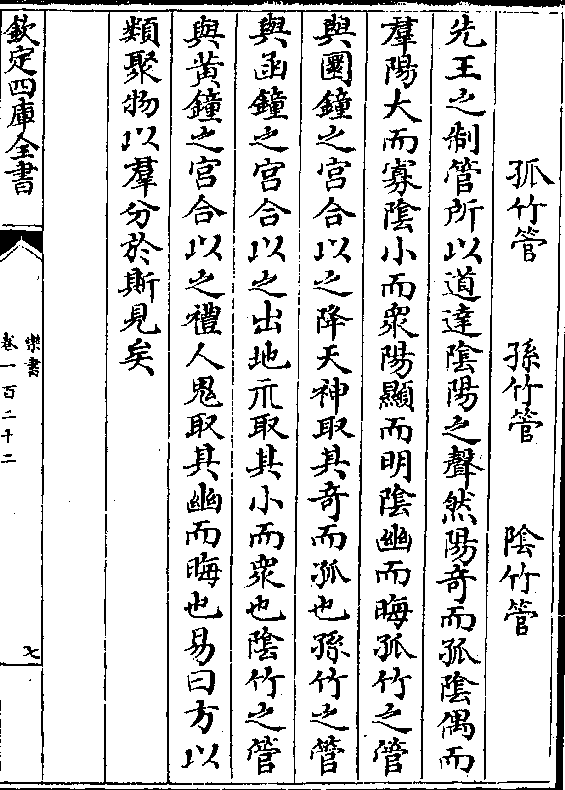 孤竹管　孫竹管　陰竹管
先王之制管所以道達陰陽之聲然陽奇而孤陰偶而
羣陽大而寡陰小而衆陽顯而明陰幽而晦孤竹之管
與圜鐘之宮合以之降天神取其奇而孤也孫竹之管
與函鐘之宮合以之出地示取其小而衆也陰竹之管
與黄鐘之宮合以之禮人鬼取其幽而晦也易曰方以
類聚物以羣分於斯見矣
欽定四庫全書
樂書
卷一百二十二
七